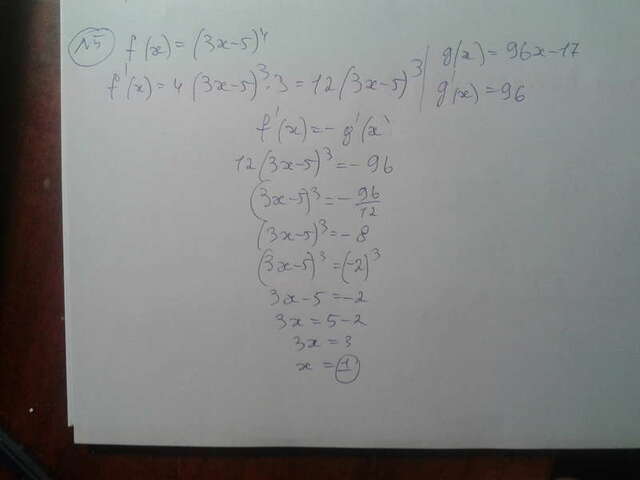 №5 f(x) = (3x-5)⁴
g(x) = 96x-17
f'(x) = 4(3x-5)³·3 = 12(3x-5)³
g'(x) = 96
f'(x) = - g'(x)
12(3x-5)³ = - 96
(3x-5)³ = - 96/12
(3x-5)³ = - 8
(3x-5)³ = (-2)³
3x-5 = -2
3x = 5-2
3x = 3
x = 1